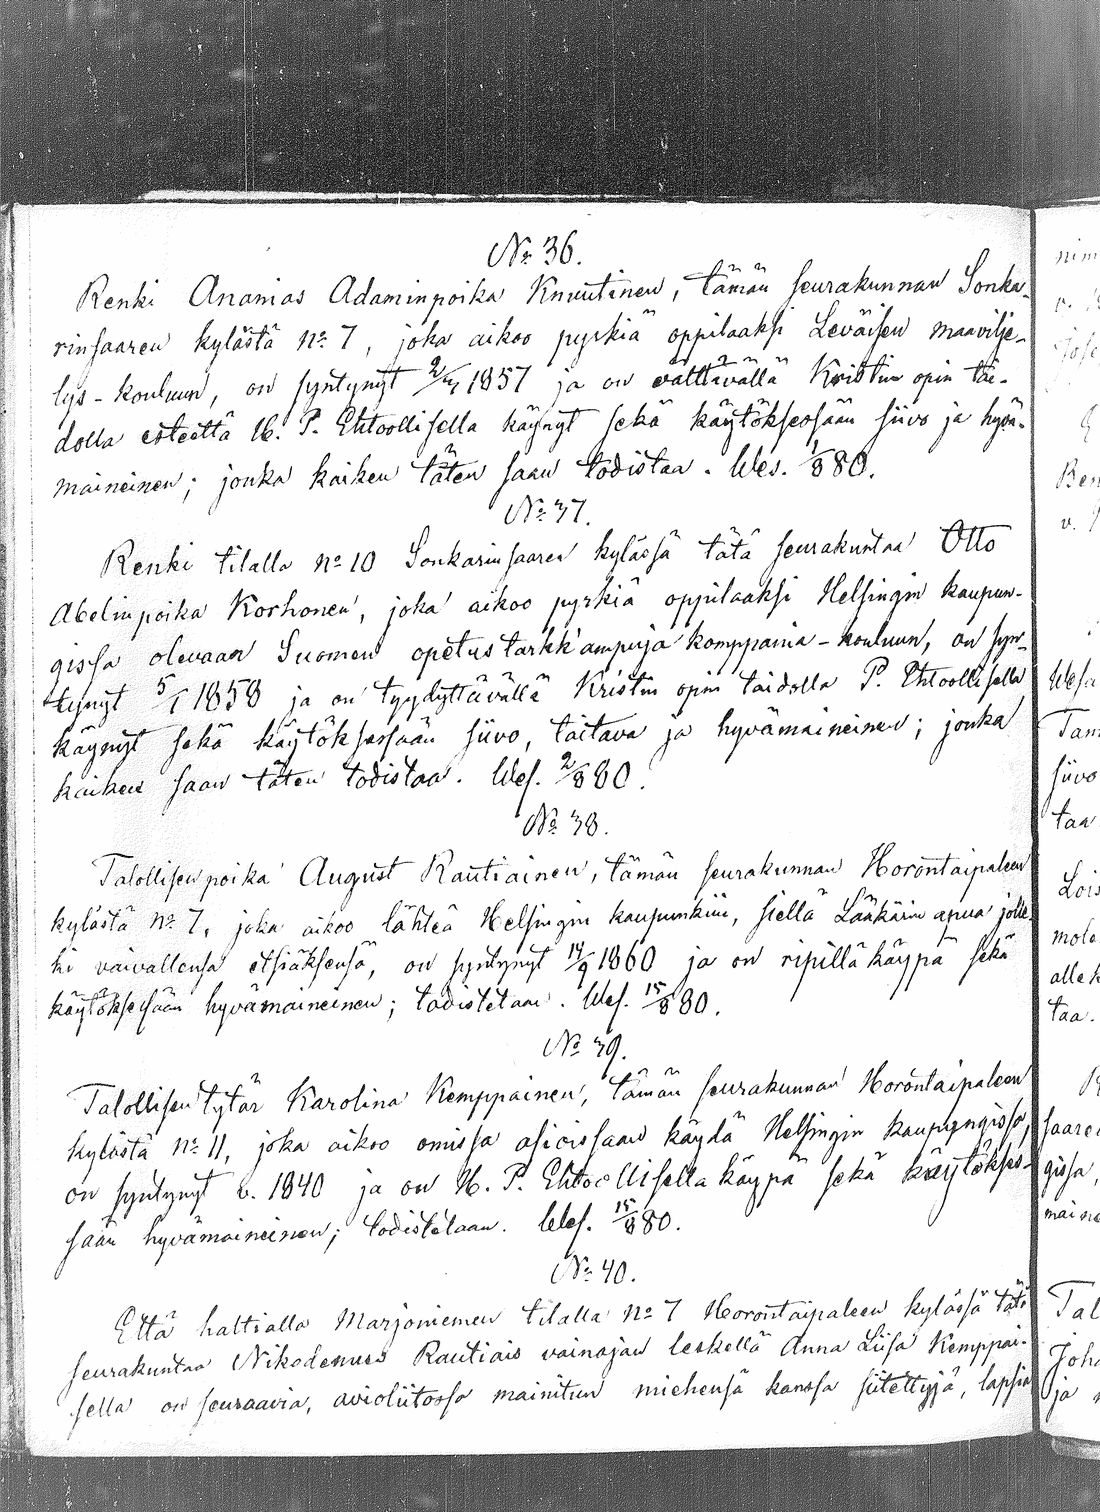 № 36.
Renki Ananias Adaminpoika Knuutinen, tämän seurakunnan Sonka-
rinsaaren kylästä no 7, joka aikoo pyrkiä oppilaaksi Leväisen maavilje-
lys-kouluun, on syntynyt 2/4 1857 ja on välttävällä Kristin opin tai-
dolla esteettä H. P. Ehtoollisella käynyt sekä käytöksessään siivo ja hyvä-
maineinen; jonka kaiken täten saan todistaa. Wes. 1/8 80.
№ 37.
Renki tilalla no 10 Sonkarinsaaren kylässä tätä seurakuntaa Otto
Abelinpoika Korhonen, joka aikoo pyrkiä oppilaaksi Helsingin kaupun-
gissa olevaan Suomen opetus tarkk'ampuja komppania-kouluun, on syn-
tynyt 5/1 1858 ja on tyydyttävällä Kristin opin taidolla P. Ehtoollisella
käynyt sekä käytöksessään siivo, taitava ja hyvämaineinen; jonka
kaiken saan täten todistaa. Wes. 2/8 80.
№ 38.
Talollisenpoika August Rautiainen, tämän seurakunnan Horontaipaleen
kylästä no 7, joka aikoo lähteä Helsingin kaupunkiin, siellä Lääkärin apua jolle-
ki vaivallensa etsiäksensä, on syntynyt 14/9 1860 ja on ripillä käypä sekä
käytöksessään hyvämaineinen; todistetaan. Wes. 15/8 80.
№ 39.
Talollisen tytär Karolina Kemppainen, tämän seurakunnan Horontaipaleen
kylästä no 11, joka aikoo omissa asioissaan käydä Helsingin kaupungissa,
on syntynyt v. 1840 ja on H. P. Ehtoollisella käypä sekä käytökses-
sään hyvämaineinen; todistetaan. Wes. 15/8 80.
№ 40.
Että haltialla Marjoniemen tilalla no 7 Horontaipaleen kylässä tätä
seurakuntaa Nikodemus Rautiais vainajan leskellä Anna Liisa Kemppai-
sella on seuraavia, avioliitossa mainitun miehensä kanssa siitettyjä, lapsia